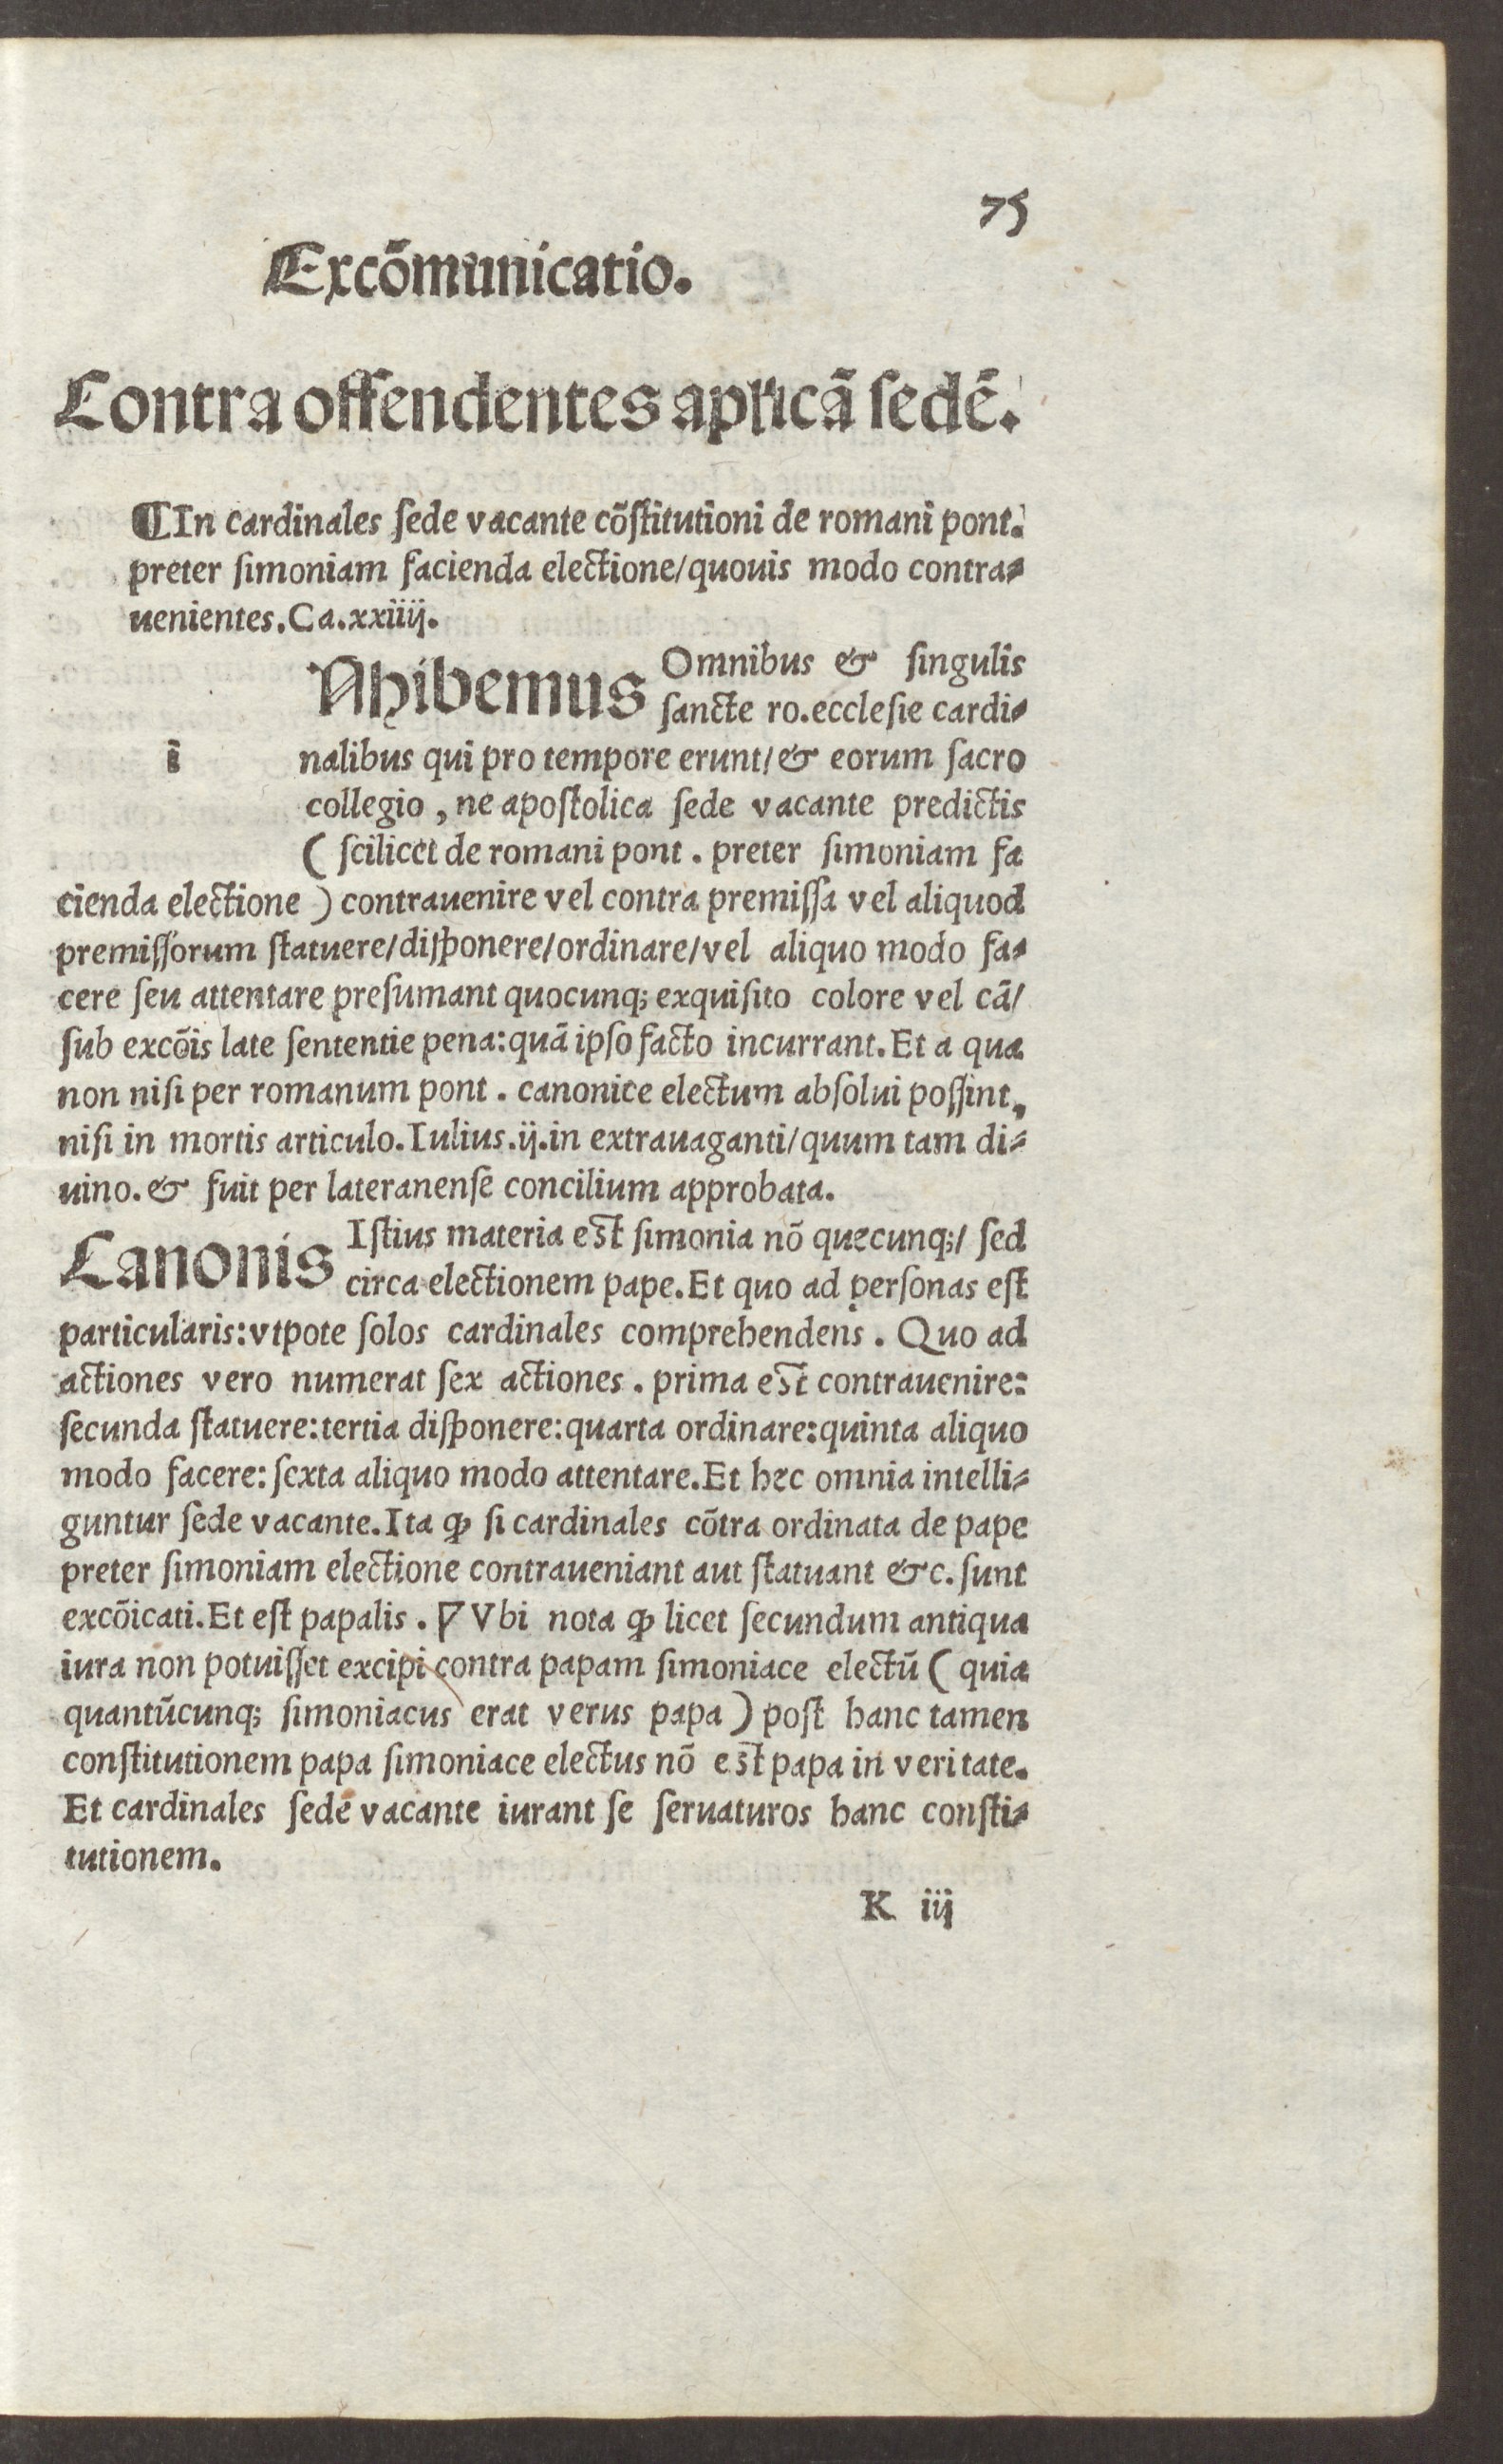 75
Excõmunicatio.
Contra offendentes aplicã sedẽ.
¶In cardinales ſede vacante cõſtitutioni de romani pont.
preter ſimoniam facienda electione/quouis modo contra⸗
uenientes.Ca.xxiiij.
Nhibemus Omnibus & ſingulis
ſancte ro.eccleſie cardi⸗
i nalibus qui pro tempore erunt/& eorum ſacro
collegio, ne apoſtolica ſede vacante predictis
( ſcilicet de romani pont. preter ſimoniam fa
cienda electione ) contrauenire vel contra premiſſa vel aliquod
premiſſorum ſtatuere/diſponere/ordinare/vel aliquo modo fa⸗
cere ſeu attentare preſumant quocunq; exquiſito colore vel cã/
ſub excõis late ſententie pena:quã ipſo facto incurrant.Et a qua
non niſi per romanum pont. canonice electum abſolui poſſint,
niſi in mortis articulo.Iulius.ij.in extrauaganti/quum tam di⸗
uino.& fuit per lateranenſe concilium approbata.
Canonis Iſtius materia eſt ſimonia nõ quecunq;/ ſed
circa electionem pape.Et quo ad perſonas eſt
particularis:vtpote ſolos cardinales comprehendens. Quo ad
actiones vero numerat ſex actiones. prima eſt contrauenire:
ſecunda ſtatuere:tertia diſponere:quarta ordinare:quinta aliquo
modo facere:ſexta aliquo modo attentare.Et hec omnia intelli⸗
guntur ſede vacante.Ita ꝙ ſi cardinales cõtra ordinata de pape
preter ſimoniam electione contraueniant aut ſtatuant &c.ſunt
excõicati.Et eſt papalis. ∇ Vbi nota ꝙ licet ſecundum antiqua
iura non potuiſſet excipi contra papam ſimoniace electũ ( quia
quantũcunq; ſimoniacus erat verus papa ) poſt hanc tamen
conſtitutionem papa ſimoniace electus nõ eſt papa in veritate.
Et cardinales ſede vacante iurant ſe ſeruaturos hanc conſti⸗
tutionem.
K iij